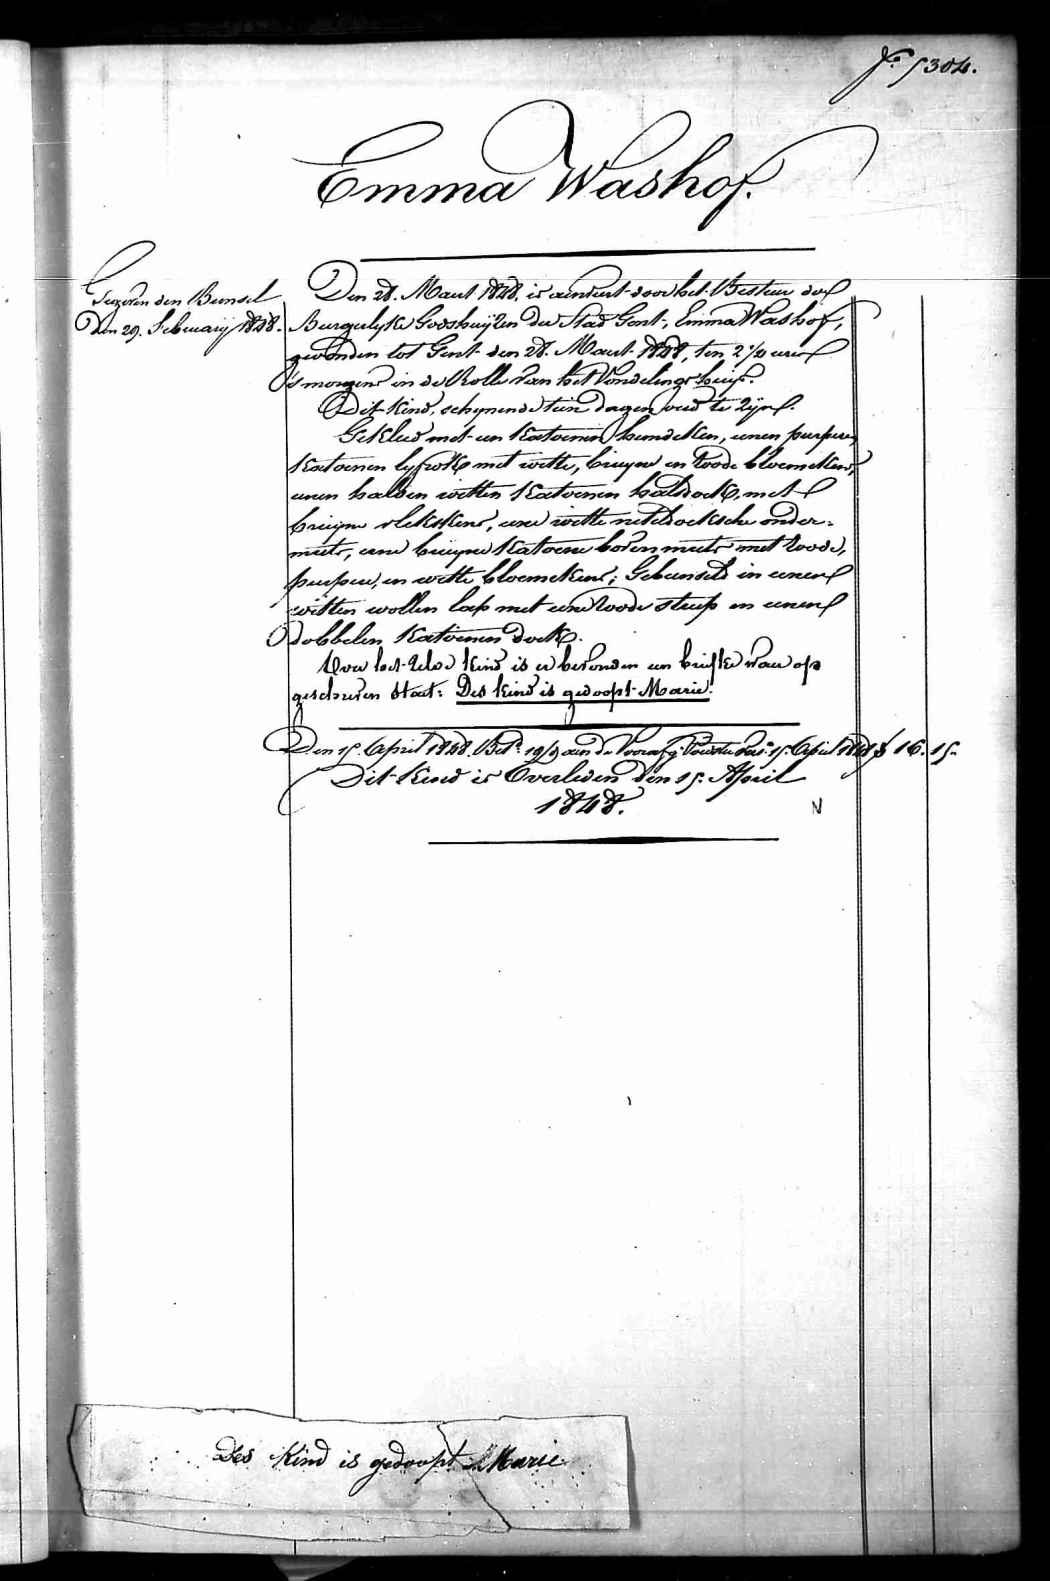 N.º 5304.
Emma Washof.
Gezeven den Bunsel
Den 29. February 1848.
Den 28. Maart 1848, is aenveirt door het Bestuer der
Burgerlyke Godshuijzen der Stad Gent, Emma Washof,
gevonden tot Gent den 28. Maart 1848, ten 2 1/2 uren
's morgens in de Rolle van het Vondelingshuijs.
Dit Kind, schynende tien dagen oud te zijn.
Gekleed met een Katoenen hemdeken, eenen purperen
Katoenen lyfrok met witte, bruyne en roode bloemekens,
eenen halven witten Katoenen halsdoek met
bruyne vlekskens, eene witte neteldoeksche onder-
muts, eene bruyne Katoene bovenmuts met roode,
purpere, en witte bloemekens; Gebunseld in eenen
witten wollen lap met eene roode streep en eenen
dobbelen Katoenen doek.
Over het zelve kind is er bevonden een briefke waer op
geschreven staet: Des kind is gedoopt Marie.
Den 15. April 1848. Bet. 19/9 aen de 15. April 1848 16. 15.
Dit Kind is Overleden den 15. April
1848.
N
Des Kind is gedoopt Marie